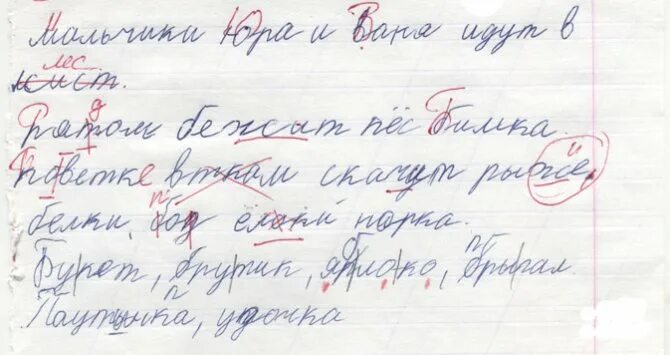 Мальчики Юра и Ваня идут в
лес
лист.
Рятом бежит пёс Бимка.
Поветке втком скачут рыжё
белки, под ёлкой норка.
Букет, брутик, яблоко, брыгал
Паутынка, удочка